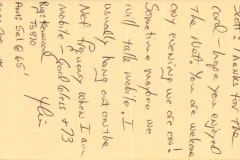 Scott: Thanks for the
card - hope you enjoyed
the Net. You are welcome
any evening we are on!
Sometime maybe we
will talk mobile. I
usually hang out on the
Net frequency when I am
mobile - Good Gless + 73
Rig: Kenwood
TS820
Ant: 5el @ 65'